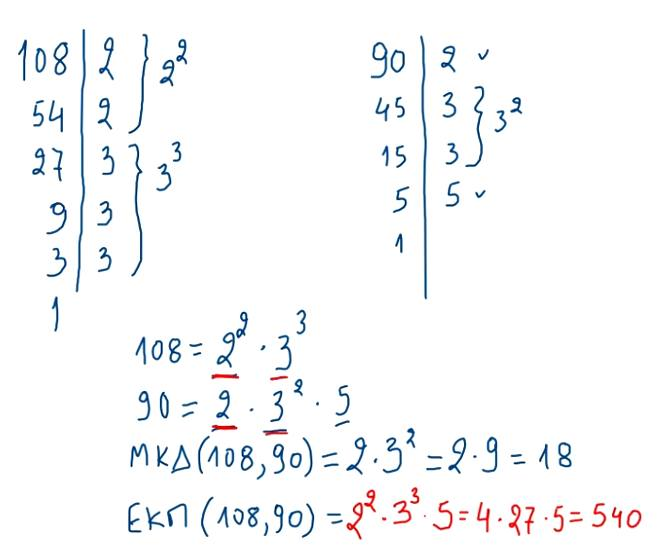 108 | 2 } 2²
54 | 2
27 | 3 } 3³
9 | 3
3 | 3
1
90 | 2 ✓
45 | 3 } 3²
15 | 3
5 | 5 ✓
1
108 = 2² · 3³
90 = 2 · 3² · 5
ΜΚΔ (108, 90) = 2 · 3² = 2 · 9 = 18
ΕΚΠ (108, 90) = 2² · 3³ · 5 = 4 · 27 · 5 = 540